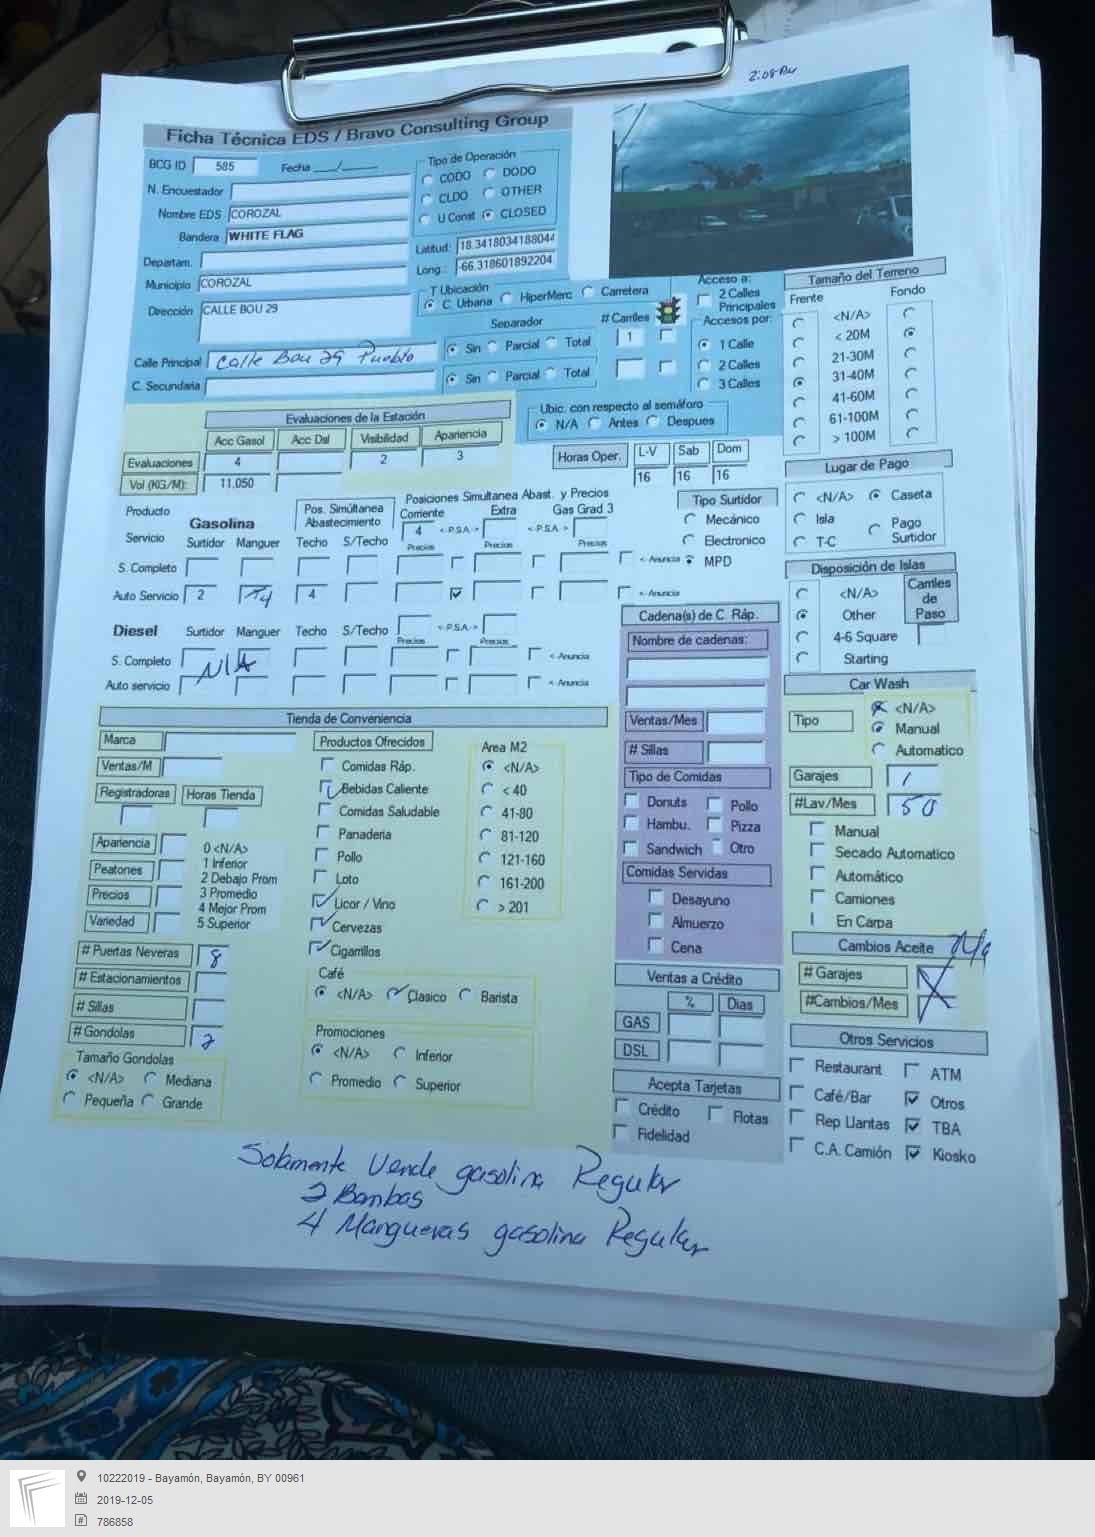 2:08 PM
Ficha Técnica EDS / Bravo Consulting Group
BCG ID 585 Fecha ___/______
N. Encuestador
Nombre EDS COROZAL
Bandera WHITE FLAG
Departam.
Municipio COROZAL
Dirección CALLE BOU 29
Calle Principal Calle Bou 29 Pueblo
C. Secundaria
Tipo de Operación
CODO DODO
CLDO OTHER
U Const CLOSED
Latitud: 18.3418034188044
Long.: -66.318601892204
T Ubicación
C. Urbana HiperMerc Carretera
Separador # Carriles
Sin Parcial Total 1
Sin Parcial Total
Acceso a:
2 Calles
Principales
Accesos por:
1 Calle
2 Calles
3 Calles
Ubic. con respecto al semáforo
N/A Antes Despues
Tamaño del Terreno
Frente Fondo
<N/A>
< 20M
21-30M
31-40M
41-60M
61-100M
> 100M
Evaluaciones de la Estación
Acc Gasol Acc Dsl Visibilidad Apariencia
Evaluaciones 4 2 3
Vol (KG/M): 11,050
Horas Oper. L-V Sab Dom
16 16 16
Lugar de Pago
<N/A> Caseta
Isla Pago
T-C Surtidor
Producto
Gasolina
Servicio Surtidor Manguer
Pos. Simúltanea
Abastecimiento
Techo S/Techo
Posiciones Simultanea Abast. y Precios
Corriente Extra Gas Grad 3
4 <-P.S.A.-> <-P.S.A.->
Precios Precios Precios
S. Completo <- Anuncia
Auto Servicio 2 4 4 <- Anuncia
Tipo Surtidor
Mecánico
Electronico
MPD
Diesel Surtidor Manguer Techo S/Techo <-P.S.A.->
Precios Precios
S. Completo N/A <- Anuncia
Auto servicio <- Anuncia
Disposición de Islas
<N/A>
Other
4-6 Square
Starting
Carriles
de
Paso
Cadena(s) de C. Ráp.
Nombre de cadenas:
Ventas/Mes
# Sillas
Tipo de Comidas
Donuts Pollo
Hambu. Pizza
Sandwich Otro
Comidas Servidas
Desayuno
Almuerzo
Cena
Car Wash
Tipo <N/A>
Manual
Automatico
Garajes 1
#Lav/Mes 50
Manual
Secado Automatico
Automático
Camiones
En Carpa
Cambios Aceite N/A
# Garajes
#Cambios/Mes
Tienda de Conveniencia
Marca
Ventas/M
Registradoras Horas Tienda
Apariencia
Peatones
Precios
Variedad
0 <N/A>
1 Inferior
2 Debajo Prom
3 Promedio
4 Mejor Prom
5 Superior
# Puertas Neveras 8
# Estacionamientos
# Sillas
# Gondolas 2
Tamaño Gondolas
<N/A> Mediana
Pequeña Grande
Productos Ofrecidos
Comidas Ráp.
Bebidas Caliente
Comidas Saludable
Panaderia
Pollo
Loto
Licor / Vino
Cervezas
Cigarrillos
Area M2
<N/A>
< 40
41-80
81-120
121-160
161-200
> 201
Café
<N/A> Clasico Barista
Promociones
<N/A> Inferior
Promedio Superior
Ventas a Crédito
% Dias
GAS
DSL
Acepta Tarjetas
Crédito Flotas
Fidelidad
Otros Servicios
Restaurant ATM
Café/Bar Otros
Rep Llantas TBA
C.A. Camión Kiosko
Solamente Vende gasolina Regular
2 Bombas
4 Mangueras gasolina Regular
10222019 - Bayamón, Bayamón, BY 00961
2019-12-05
786858